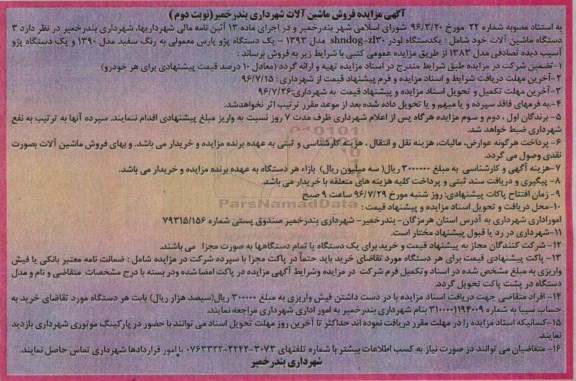 آگهی مزایده فروش ماشین آلات شهرداری بندرخمیر(نوبت دوم )
به استناد مصوبه شماره ۲۲ مورخ ۹۶/۳/۲۰ شورای اسلامی شهر بندرخمیر و در اجرای ماده ۱۳ آئین نامه مالی شهرداریها، شهرداری بندرخمیر در نظر دارد ۳
دستگاه ماشین آلات خود شامل : یکدستگاه لودر shndog-zl۳۰ مدل ۱۳۹۳ - یک دستگاه پژو پارس معمولی به رنگ سفید مدل ۱۳۹۰ و یک دستگاه پژو
آسیب دیده تصادفی مدل ۱۳۸۳ از طریق مزایده عمومی کتبی با شرایط زیر به فروش برساند :
۱-تضمین شرکت در مزایده طبق شرایط مندرج در اسناد مزایده تهیه و ارائه گردد (معادل ۱۰ درصد قیمت پیشنهادی برای هر خودرو)
۲-آخرین مهلت دریافت شرایط و اسناد مزایده و فرم پیشنهاد قیمت از شهرداری : ۹۶/۷/۱۵
۳-آخرین مهلت تکمیل و تحویل اسناد مزایده و پیشنهاد قیمت به شهرداری:۹۶/۷/۲۶
۴-به فرمهای فاقد سپرده و یا مبهم و یا تحویل داده شده بعد از موعد مقرر ترتیب اثر نخواهدشد.
۵- برندگان اول ، دوم و سوم مزایده هرگاه پس از اعلام شهرداری ظرف مدت ۷ روز نسبت به واریز مبلغ پیشنهادی اقدام ننمایند. سپرده آنها به ترتیب به نفع
شهرداری ضبط خواهد شد.
۶- پرداخت هرگونه عوارض، مالیات، هزینه نقل و انتقال ، هزینه کارشناسی و ثبتی به عهده برنده مزایده و خریدار می باشد. و بهای فروش ماشین آلات بصورت
نقدی وصول می گردد.
۷-هزینه آگهی و کارشناسی به مبلغ ۳۰۰۰۰۰۰ ریال( سه میلیون ریال) بازاء هر دستگاه به عهده برنده مزایده و خریدار می باشد.
۸- پیگیری و دریافت سند ثبتی و پرداخت کلیه هزینه های متعلقه با خریدار می باشد.
۹- زمان افتتاح پاکات پیشنهادی: روز شنبه مورخ ۹۶/۷/۲۹ ساعت ۹ صبح
۱۰-محل دریافت و تحویل اسناد مزایده و پیشنهاد قیمت :
امورادری شهرداری به آدرس استان هرمزگان- بندرخمیر- شهرداری بندرخمیر صندوق پستی شماره ۷۹۳۱۵/۱۵۶
۱۱-شهرداری در رد یا قبول پیشنهاد مختار است.
۱۲- شرکت کنندگان مجاز به پیشنهاد قیمت و خرید برای یک دستگاه یا تمام دستگاهها به صورت مجزا می باشند.
۱۳- پاکت پیشنهادی قیمت برای هر دستگاه مورد تقاضای خرید باید حتماً در پاکت مجزا با سپرده شرکت در مزایده شامل : ضمانت نامه معتبر بانکی یا فیش
واریزی به مبلغ مشخص شده در اسناد وتکمیل فرم شرکت در مزایده وشرایط آگهی مزایده در پاکت امضا شده ودر بسته با درج مشخصات متقاضی و نام و مدل
دستگاه در پشت پاکت تحویل گردد.
۱۴- افراد متقاضی جهت دریافت اسناد مزایده با در دست داشتن فیش واریزی به مبلغ ۳۰۰۰۰۰ ریال(سیصد هزار ریال) بابت هر دستگاه مورد تقاضای خرید به
حساب سیبا به شماره ۳۱۰۰۰۰۱۱۹۴۰۰۹ بنام شهرداری بندرخمیر به امور اداری شهرداری مراجعه نمایند.
۱۵-کسانیکه اسناد مزایده را در مهلت مقرر دریافت نموده اند حداکثر تا آخرین روز مهلت تحویل اسناد می توانند با حضور در پارکینگ موتوری شهرداری بازدید
نمایند.
۱۶- متقاضیان می توانند در صورت نیاز به کسب اطلاعات بیشتر با شماره تلفنهای ۳۰۷۳-۲۲۴۲-۰۷۶۳۳۲۲ با امور قراردادها شهرداری تماس حاصل نمایند.
شهرداری بندرخمیر
ParsNamadData